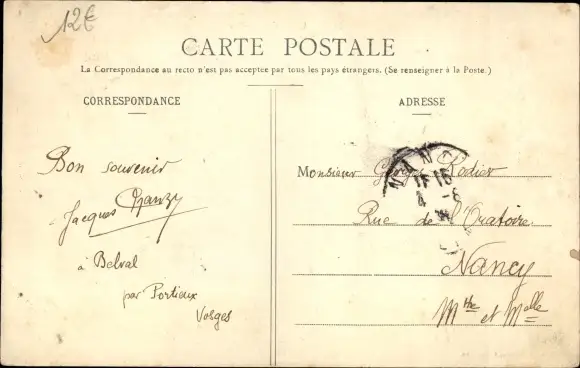 12€
CARTE POSTALE
La Correspondance au recto n'est pas acceptée par tous les pays étrangers. (Se renseigner à la Poste.)
CORRESPONDANCE
Bon souvenir
Jacques
à Belval
par Portieux
Vosges
ADRESSE
Monsieur Rodier
Rue de l'Oratoire
Nancy
Mtte et Melle
NANCY
4 - 8